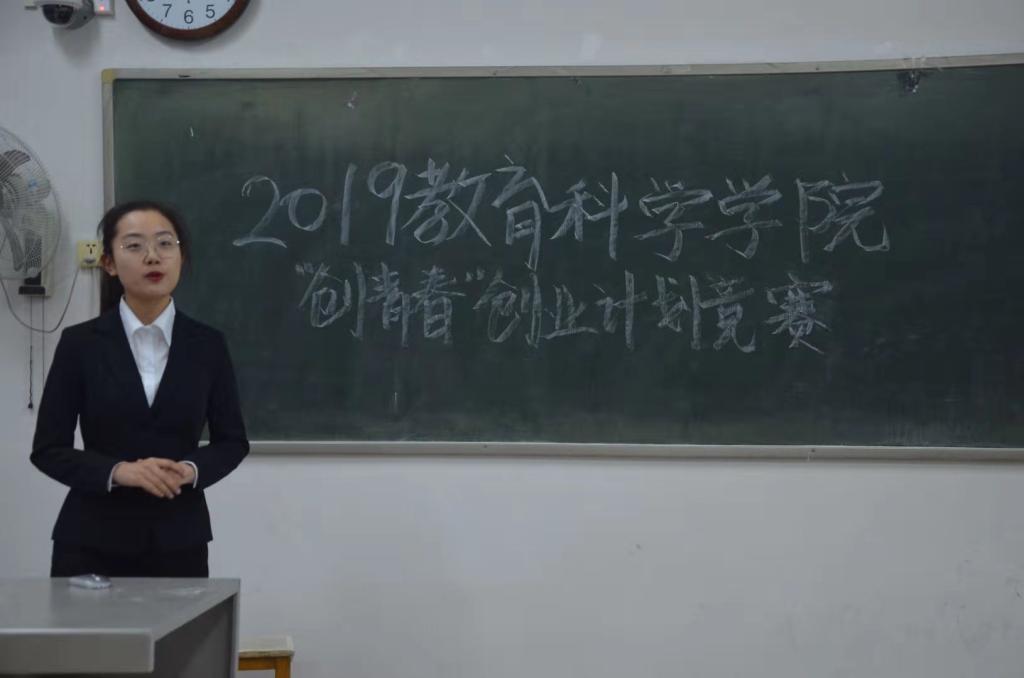 7 6 5
2019教育科学学院
"创青春"创业计划竞赛